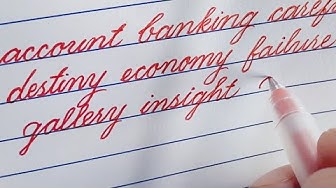 account banking
destiny economy failure
gallery insight